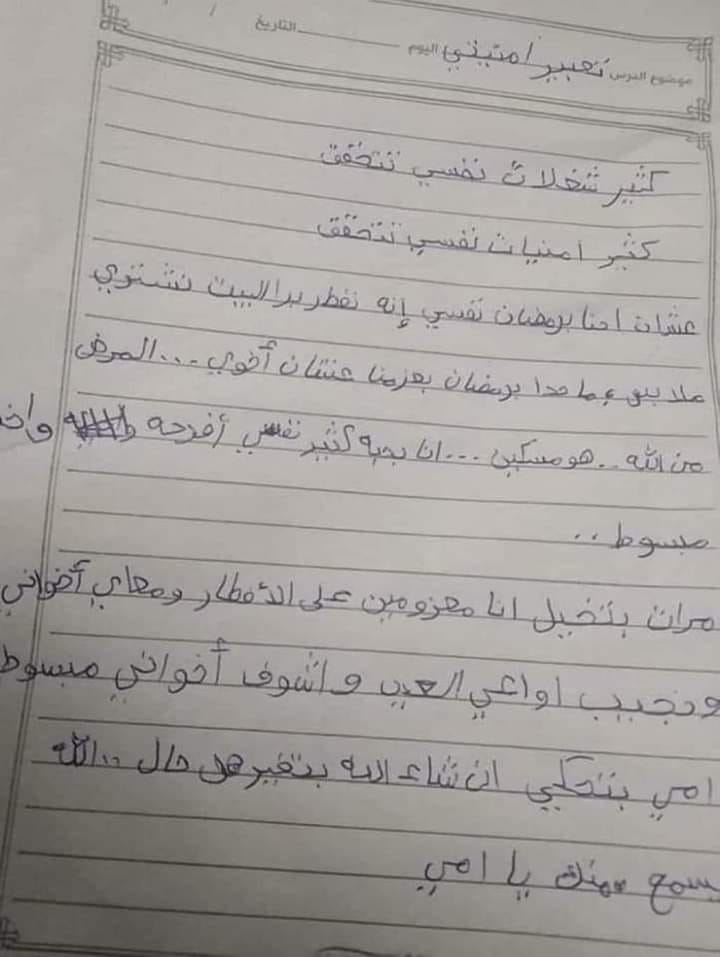 التاريخ
موضوع الدرس تعبير أمنيتي اليوم
كثير شغلات نفسي تتحقق
كثير امنيات نفسي تتحقق
عشان احنا برمضان نفسي إنه نفطر برا البيت نشتري
ملابس وما حدا برمضان بعزمنا عشان أخوي ... المرض
من الله .. هو مسكين ... انا بحبه كثير نفسي أفرحه واخ
مبسوط ..
مرات بتخيل انا معزومين على الأفطار ومعاي أخواني
ونجيب اواعي العيد واشوف أخواني مبسوط
امي بتحكي ان شاء الله بتغير هل حال .. الله
يسمع منك يا امي